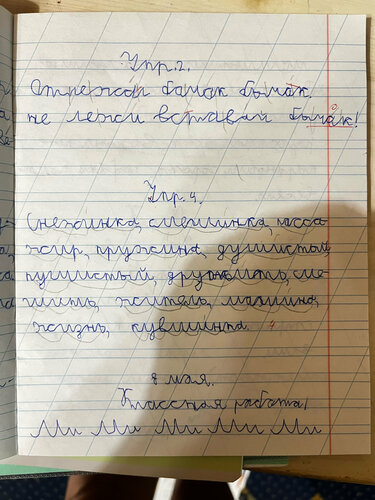 Упр.2.
Отлежал бочок бычок.
не лежи вставай бычок!
Упр. 4.
Снежинка, смешинка, пасса
жир, пружина, душистый,
пушистый, дружить, сме
шить, житель, машина,
жизнь, кувшинка. 4
8 мая.
Классная работа
Ми Ми Ми Ми Ми